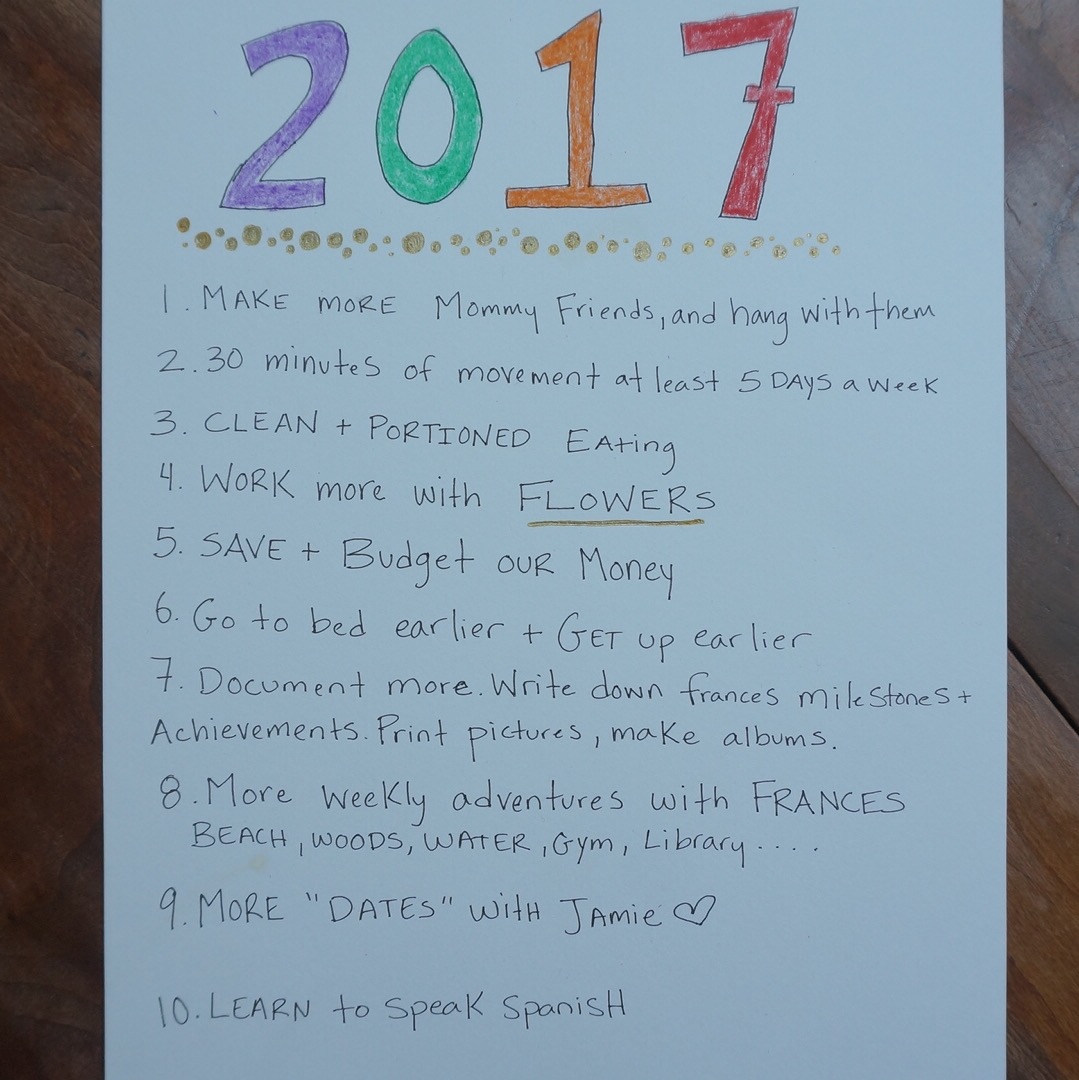 2017
1. MAKE MORE Mommy Friends, and hang with them
2. 30 minutes of movement at least 5 DAYS a week
3. CLEAN + PORTIONED EAting
4. WORK more with FLOWERS
5. SAVE + Budget OUR Money
6. Go to bed earlier + GET up earlier
7. Document more. Write down frances milestones +
Achievements. Print pictures, make albums.
8. More weekly adventures with FRANCES
BEACH, WOODS, WATER, Gym, Library....
9. MORE "DATES" with JAmie ♡
10. LEARN to speak SpanisH